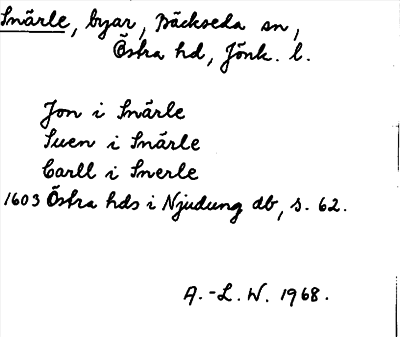 Snärle, byar, Bäckseda sn,
Östra hd, Jönk. l.
Jon i Snärle
Suen i Snärle
Carll i Snerle
1603 Östra hds i Njudung db, s. 62.
A.-L. W. 1968.